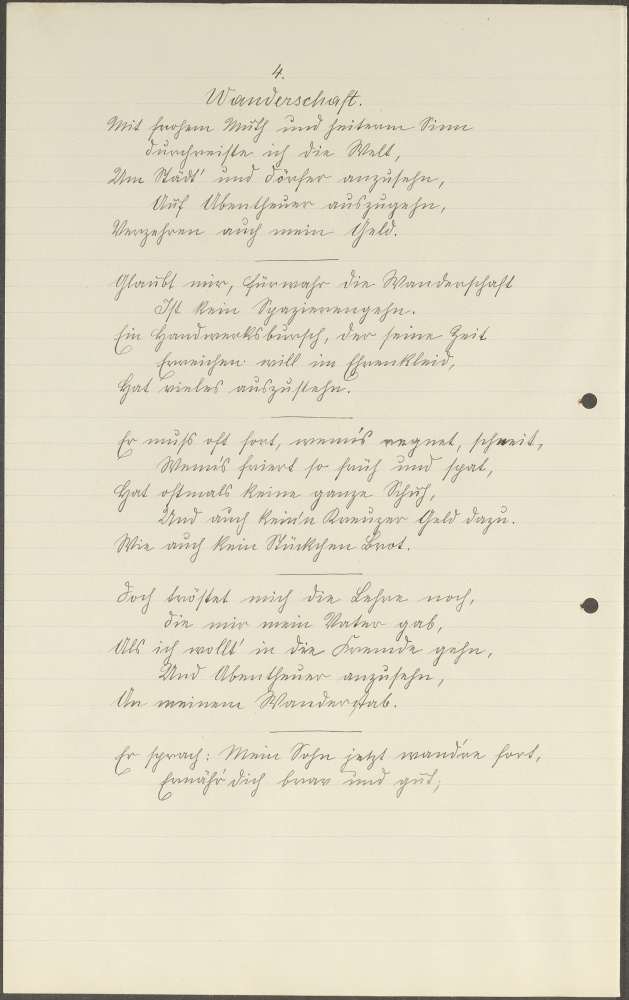 4.
Wanderschaft.
Mit frohem Muth und heiterm Sinn
durchreiste ich die Welt,
Um Städt' und Dörfer anzusehn,
Auf Abentheuer auszugehn,
Verzehren auch mein Geld.
Glaubt mir, fürwahr die Wanderschaft
Ist kein Spazierengehn.
Ein Handwerksbursch, der seine Zeit
Erreichen will im Ehrenkleid,
Hat vieles auszustehn.
Er muss oft fort, wenn's regnet, schneit,
Wenn's friert so früh und spat,
Hat oftmals keine ganze Schuh,
Und auch kein'n Kreuzer Geld dazu.
Wie auch kein Stückchen Brot.
Doch tröstet mich die Lehre noch,
die mir mein Vater gab,
Als ich wollt' in die Fremde gehn,
Und Abentheuer anzusehn,
An meinem Wanderstab.
Er sprach: Mein Sohn jetzt wandre fort,
Ernähr' dich brav und gut;